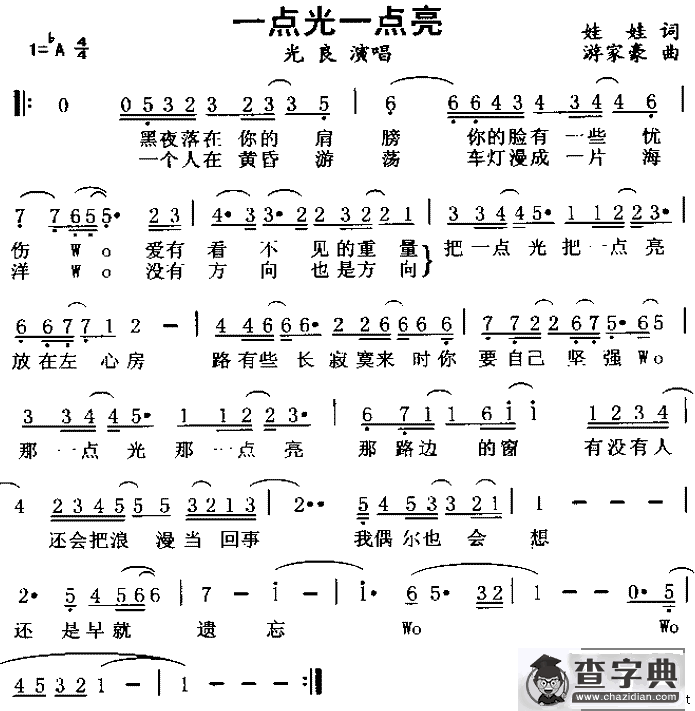 一点光一点亮
1=♭A 4/4
光良 演唱
娃娃 词
游家豪 曲
0 0532 3 23 3 5 | 6 6643 4 34 4 6 |
黑夜落在 你的 肩 膀 你的脸有 一些 忧
一个人在 黄昏 游 荡 车灯漫成 一片 海
7 7655· 23 | 4·3 3·2 22321 | 33445· 11223· |
伤 Wo 爱有 看不见的重量 把一点光把一点亮
洋 Wo 没有 方向也是方向
6 6771 2 - | 44666· 226666 | 77267 5·65 |
放在左心房 路有些长寂寞来时你 要自己坚强Wo
3 3445· 1 1223· | 6 711 61 1 1234 |
那一点光 那一点亮 那路边的窗 有没有人
4 23455 5 3213 | 2·· 5453321 | 1 - - - |
还会把浪漫当回事 我偶尔也会想
2· 5 4566 | 7 - 1 - | 1· 65· 32 | 1 - 0· 5 |
还是早就 遗忘 Wo Wo
4532 1 - | 1 - - - :‖
查字典
www.chazidian.com
t